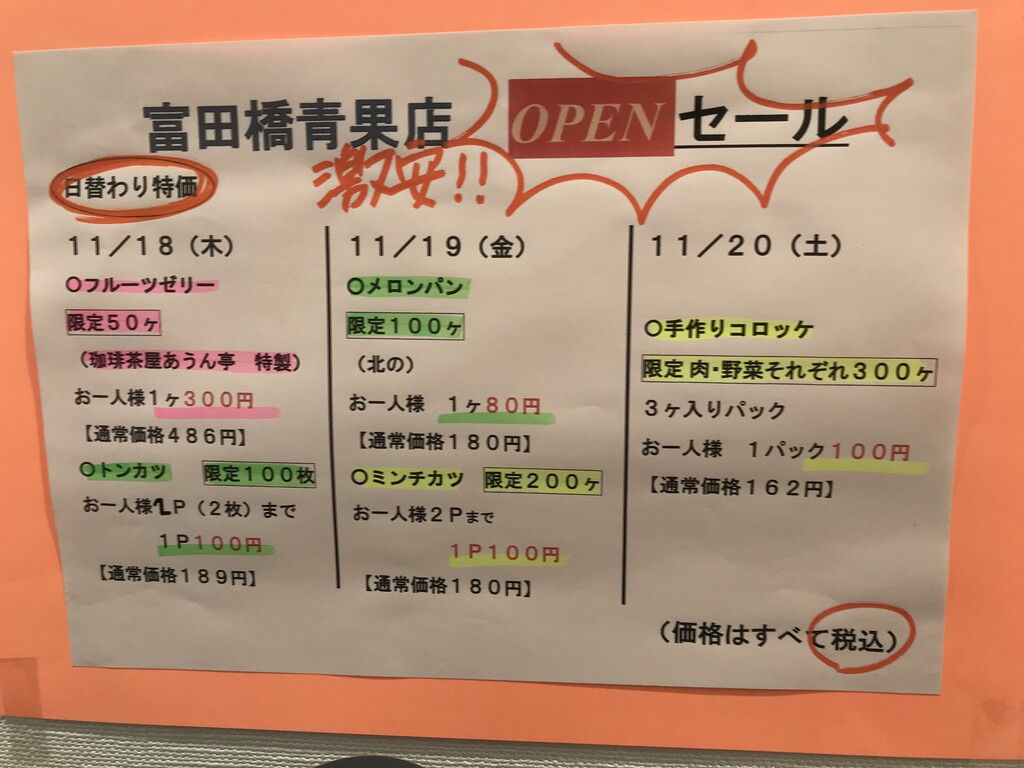 富田橋青果店 OPEN セール
激安!!
日替わり特価
11／18（木）
〇フルーツゼリー
限定50ヶ
（珈琲茶屋あうん亭　特製）
お一人様1ヶ300円
【通常価格486円】
〇トンカツ　限定100枚
お一人様2P（2枚）まで
1P100円
【通常価格189円】
11／19（金）
〇メロンパン
限定100ヶ
（北の）
お一人様　1ヶ80円
【通常価格180円】
〇ミンチカツ　限定200ヶ
お一人様2Pまで
1P100円
【通常価格180円】
11／20（土）
〇手作りコロッケ
限定 肉・野菜それぞれ300ヶ
3ヶ入りパック
お一人様　1パック100円
【通常価格162円】
（価格はすべて税込）